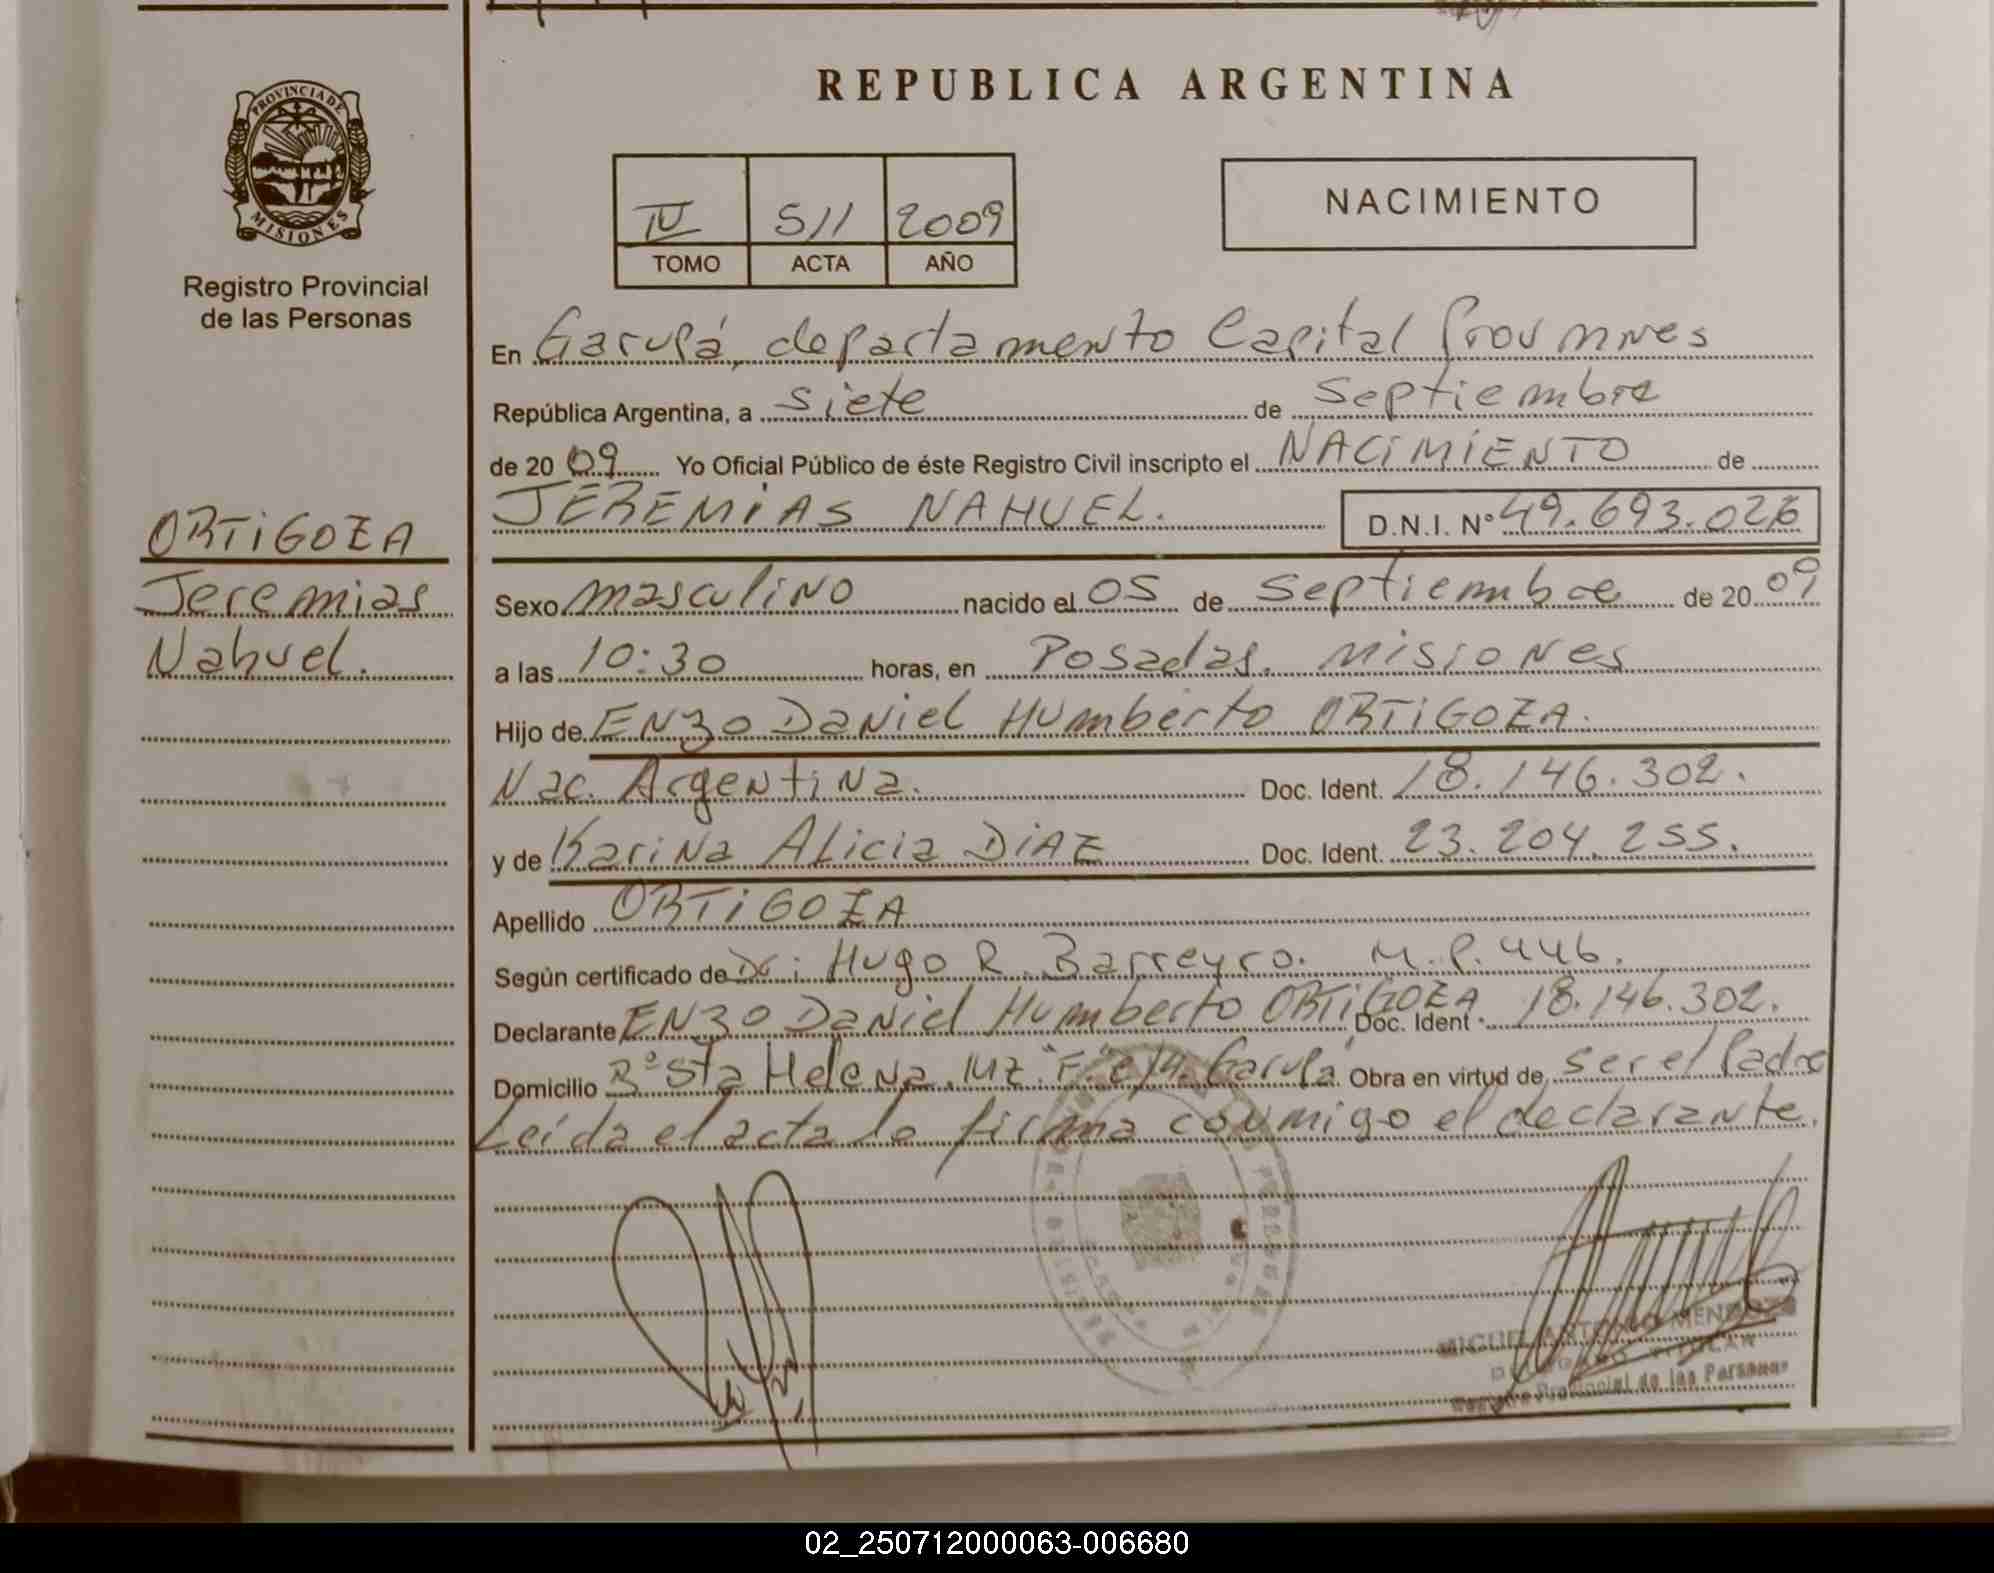 REPUBLICA ARGENTINA
PROVINCIA DE
MISIONES
Registro Provincial
de las Personas
IV 511 2009
TOMO ACTA AÑO
NACIMIENTO
En Garupá, departamento Capital Prov mnes
República Argentina, a siete de septiembre
de 2009 Yo Oficial Público de éste Registro Civil inscripto el NACIMIENTO de
JEREMIAS NAHUEL. D.N.I. Nº 49.693.026
ORTIGOZA
Jeremias
Nahuel.
Sexo masculino nacido el 05 de septiembre de 2009
a las 10:30 horas, en Posadas. Misiones
Hijo de ENZO Daniel Humberto ORTIGOZA.
Nac. Argentina. Doc. Ident. 18.146.302.
y de Karina Alicia DIAZ Doc. Ident. 23.204.255.
Apellido ORTIGOZA
Según certificado de Dr: Hugo R. Barreyro. M.P. 446.
Declarante ENZO Daniel Humberto ORTIGOZA Doc. Ident. 18.146.302.
Domicilio Bº Sta Helena. MZ. "F" c/14. Garupá. Obra en virtud de ser el Padre
Leída el acta la firma conmigo el declarante.
MIGUEL ANTONIO
TITULAR
Registro Provincial de las Personas
02_250712000063-006680